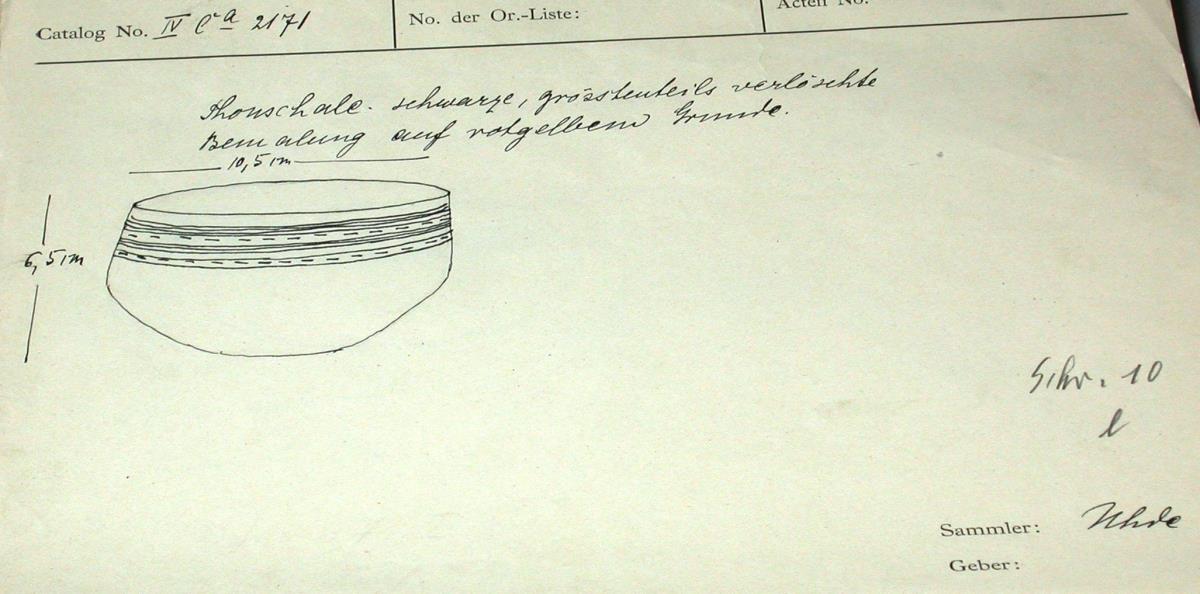 Catalog No. IV Ca 2171 No. der Or.-Liste: Acten No.
Thonschale. schwarze, grösstenteils verlöschte
Bemalung auf rotgelbem Grunde.
10,5 cm
6,5 cm
Schr. 10
l
Sammler: Uhde
Geber: